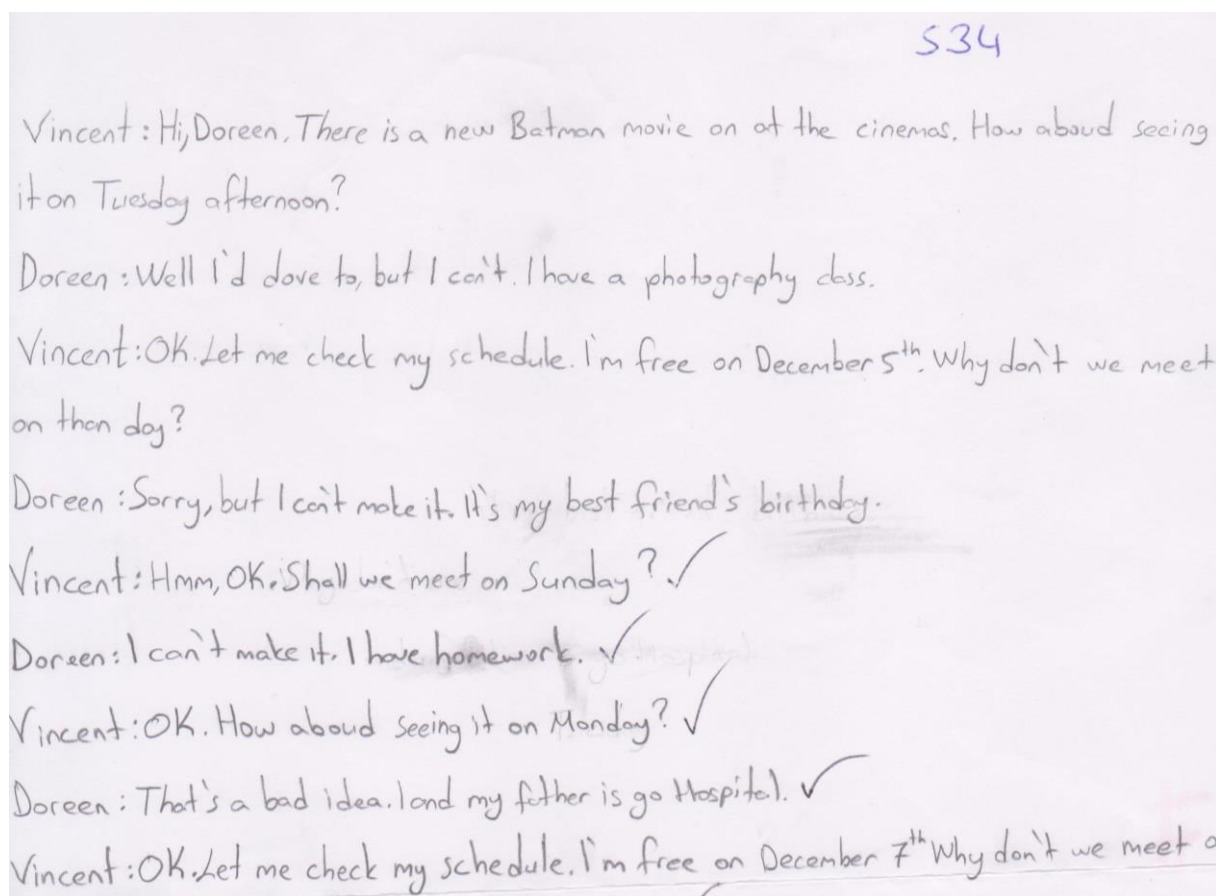 S34
Vincent: Hi, Doreen. There is a new Batman movie on at the cinemas. How aboud seeing
it on Tuesday afternoon?
Doreen: Well I'd dove to, but I can't. I have a photography class.
Vincent: OK. Let me check my schedule. I'm free on December 5th. Why don't we meet
on than day?
Doreen: Sorry, but I can't make it. It's my best friend's birthday.
Vincent: Hmm, OK. Shall we meet on Sunday? ✓
Doreen: I can't make it. I have homework. ✓
Vincent: OK. How aboud seeing it on Monday? ✓
Doreen: That's a bad idea. I and my father is go Hospital. ✓
Vincent: OK. Let me check my schedule. I'm free on December 7th Why don't we meet